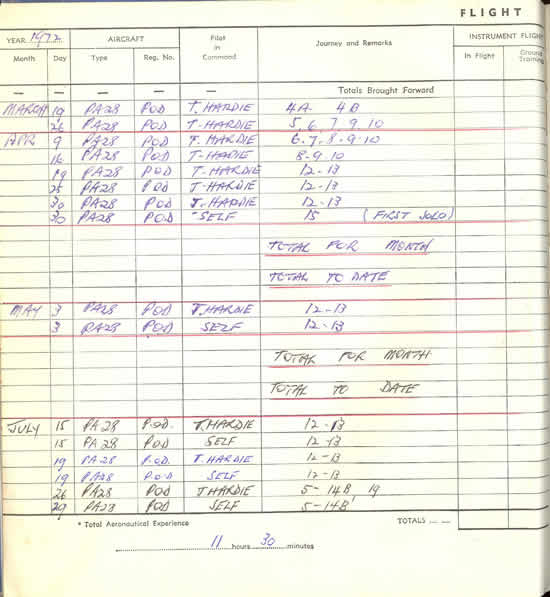 FLIGHT
YEAR 1972 AIRCRAFT Pilot in Command Journey and Remarks INSTRUMENT FLIGH
Month Day Type Reg. No. In Flight Ground Training
— — — — — Totals Brought Forward
MARCH 19 PA28 POD T. HARDIE 4A. 4B
26 PA28 POD T. HARDIE 5, 6, 7, 9, 10
APR 9 PA28 POD T. HARDIE 6.7, 8.9.10
16 PA28 POD T. HARDIE 8-9.10
19 PA28 POD T. HARDIE 12-13
25 PA28 POD T. HARDIE 12-13
30 PA28 POD T. HARDIE 12-13
30 PA28 POD SELF 15 (FIRST SOLO)
TOTAL FOR MONTH
TOTAL TO DATE
MAY 3 PA28 POD T. HARDIE 12-13
3 PA28 POD SELF 12-13
TOTAL FOR MONTH
TOTAL TO DATE
JULY 15 PA28 P.O.D. T. HARDIE 12-13
15 PA28 POD SELF 12-13
19 PA28 P.O.D. T. HARDIE 12-13
19 PA28 P.O.D SELF 12-13
26 PA28 POD T HARDIE 5-14B 19
29 PA28 POD SELF 5-14B
* Total Aeronautical Experience TOTALS — —
11 hours 30 minutes